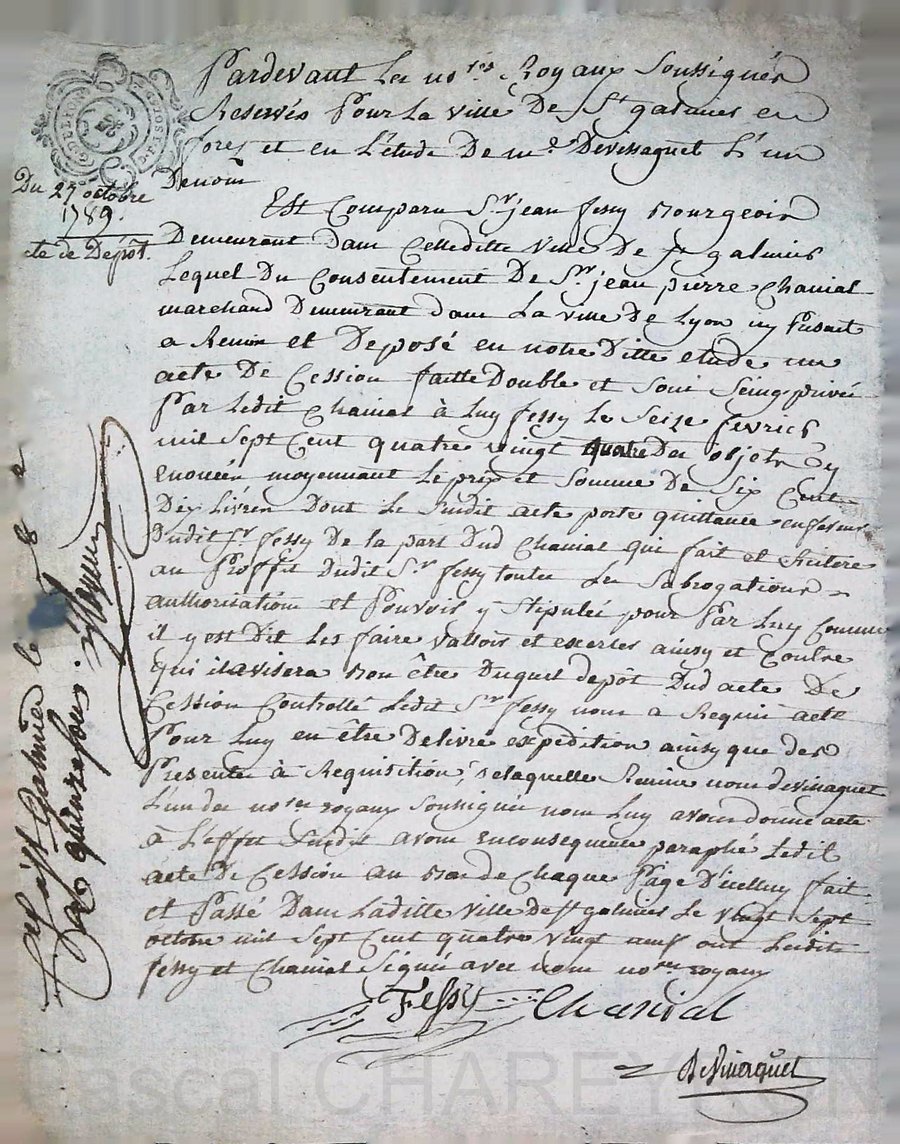 Pardevant Les no.res Royaux Soussignés
Reservés Pour La ville De St galmier en
forez et en L'étude De me Devissaguet L'un
Denous
Du 27 octobre
1789.
acte de Dépôt.
Est Comparu Sr jean fessy Bourgeois
Demeurant Dans Celleditte ville De St galmier
Lequel Du Consentement De Sr jean pierre Chanial
marchand Demeurant Dans La ville De Lyon icy Présent
a Remis et Deposé en notre Ditte etude un
acte De Cession faitte Double et Sous Seing privé
Par Ledit Chanial à Luy fessy Le Seize fevrier
mil Sept Cent quatre vingt quatre Des objets y
enoncés moyennant Le prix et Somme De Six Cent
Dix Livres Dont Le Susdit acte porte quittance en faveur
Dudit Sr fessy De la part Dud Chanial qui fait et Reitere
au Proffit Dudit Sr fessy toutes Les Subrogations
authorisations et Pouvoirs y Stipulés pour Par Luy Comme
il y est Dit Les faire valloir et exercer ainsy et Contre
qui il avisera Bon être Duquel depôt Dud acte De
Cession Controllé Ledit Sr fessy nous a Requis acte
Pour Luy en être Delivré expédition ainsy que des
Presentes à Requisition, De laquelle Remise nous devissaguet
L'un des no.res royaux Soussignés nous Luy avons donné acte
à L'effet Susdit avons enconsequence paraphé Ledit
acte De Cession au Bas de Chaque Page D'icelluy fait
et Passé Dans Laditte ville De St galmier Le vingt Sept
octobre mil Sept Cent quatre vingt neuf ont Lesdits
fessy et Chanial Signés avec nous no.res royaux
Fessy Chanial
Devissaguet
St Galmier le
quinze sous
Pascal CHAREYRON